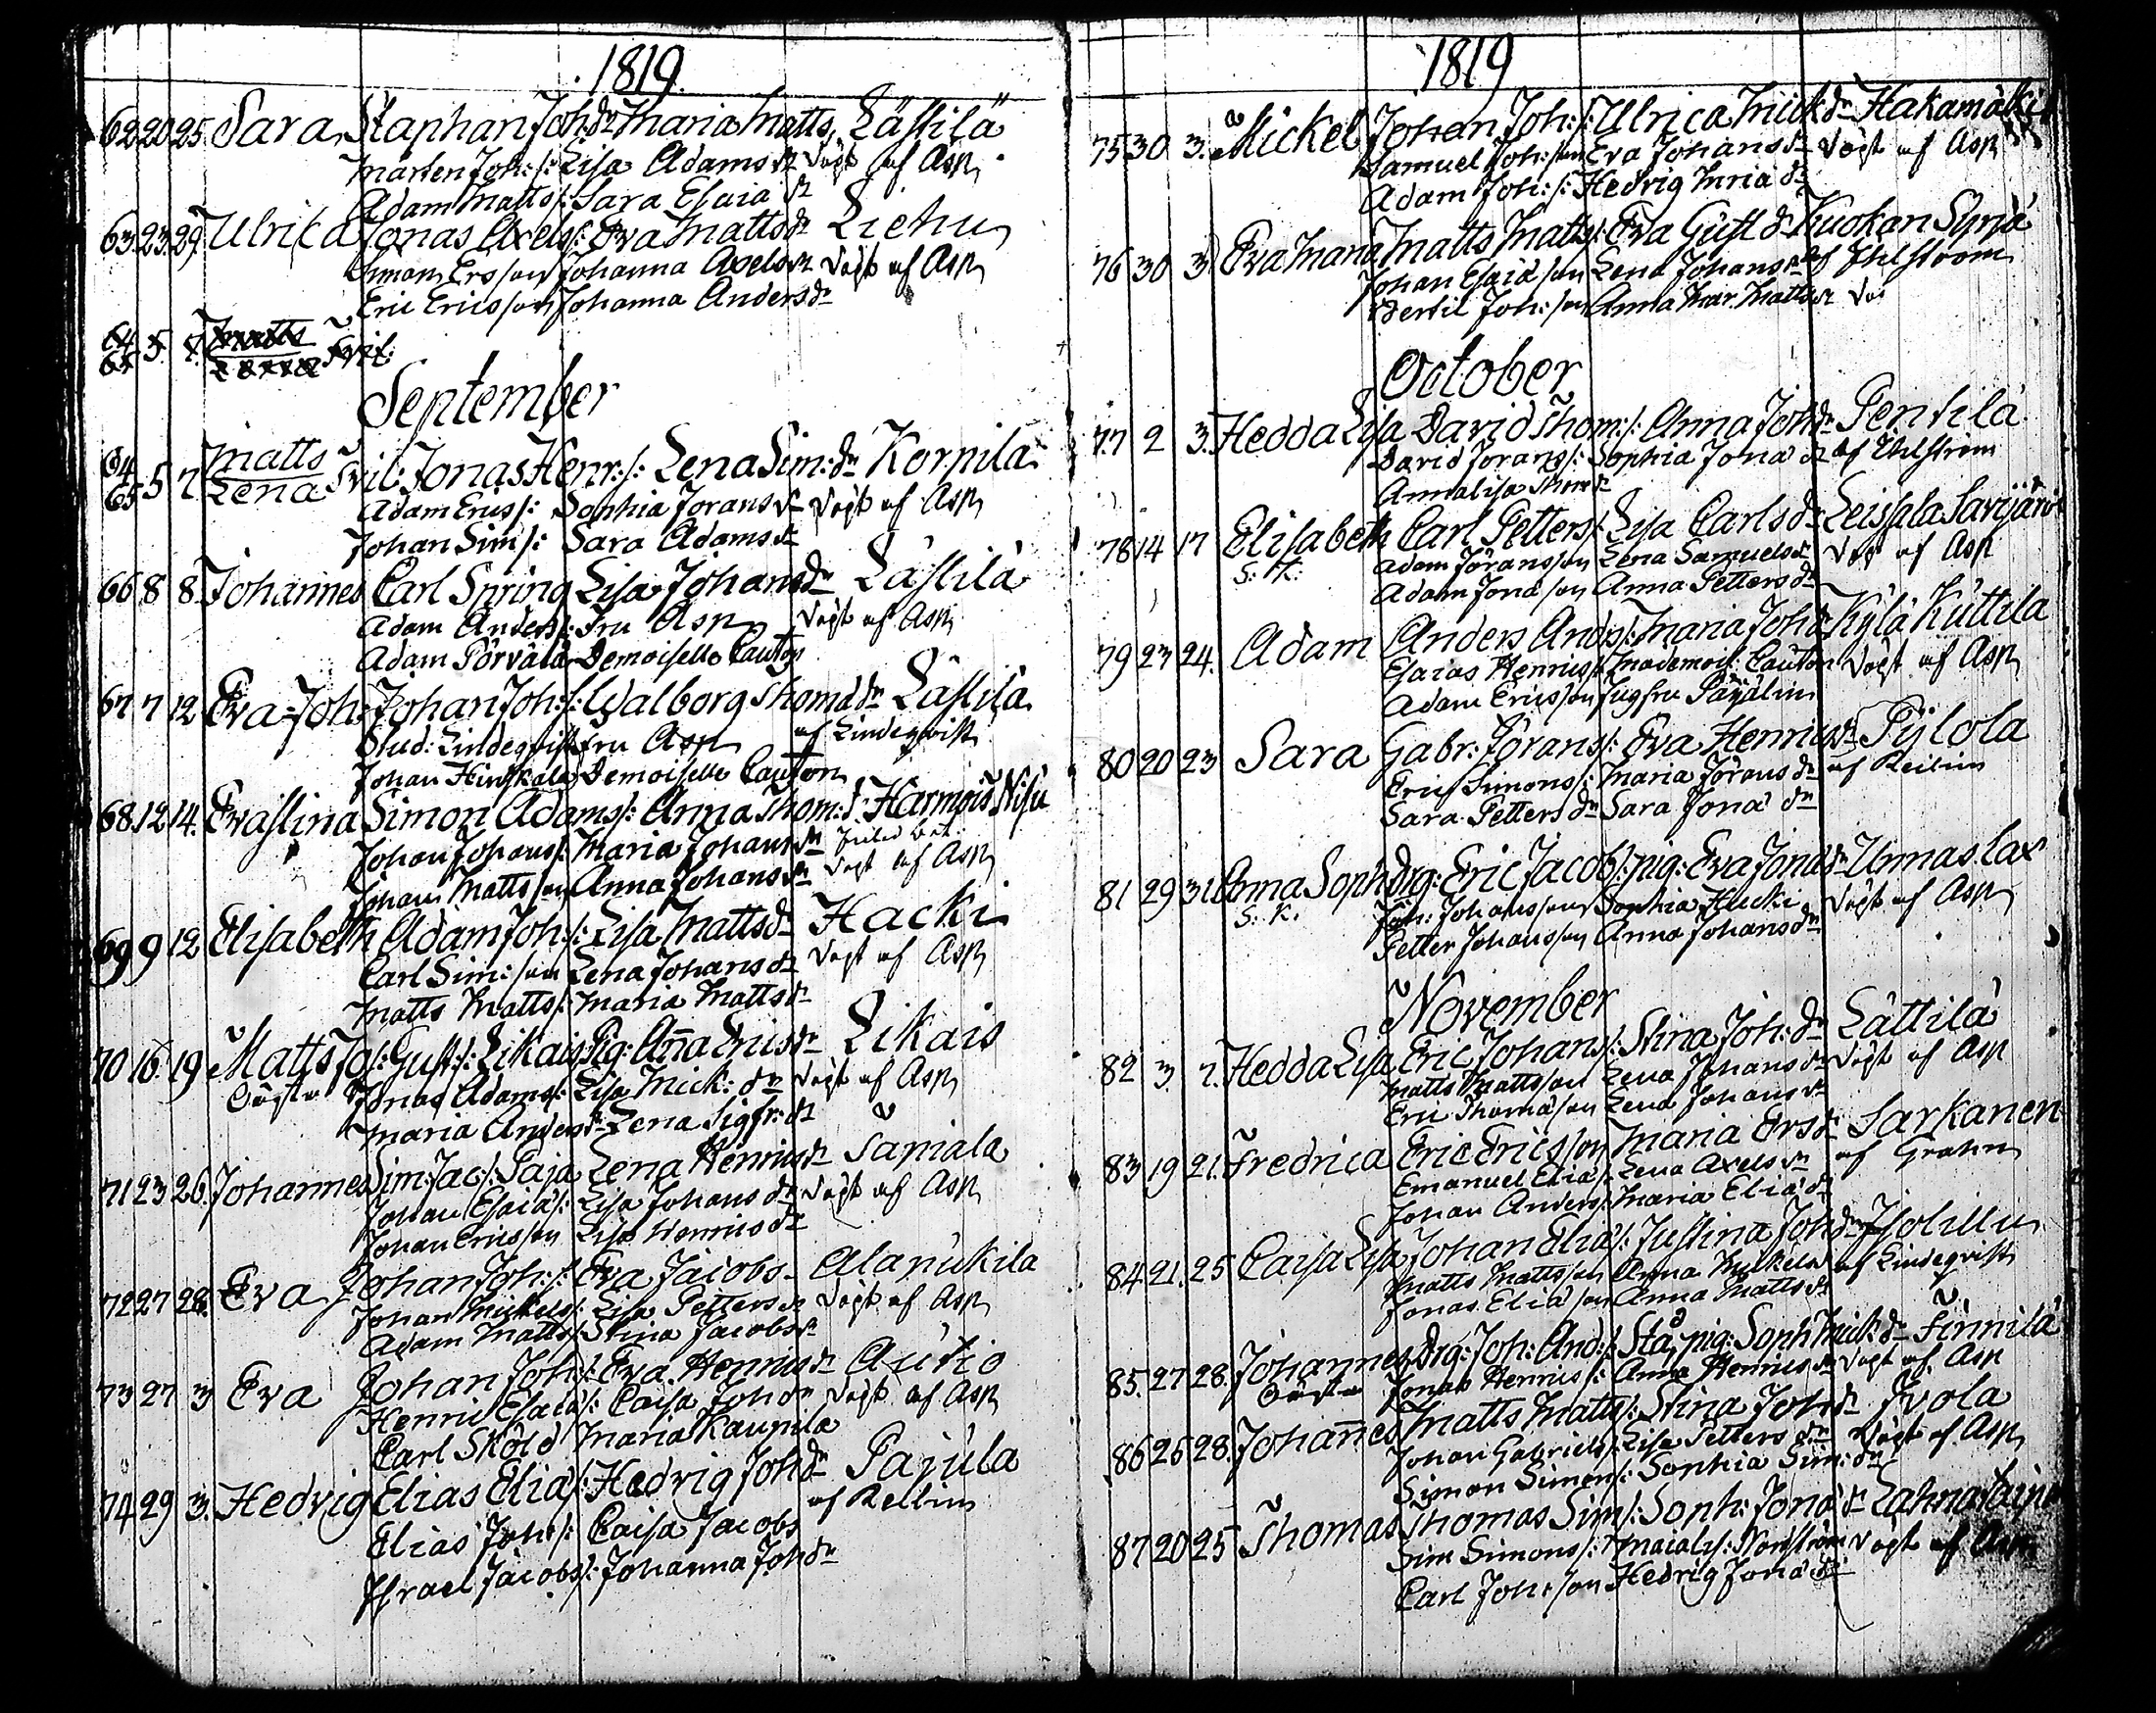 1819.
62 20 25 Sara Staphan Joh: dr Maria Matts Lässilä
Mårten Joh: s: Lisa Adams dr Döpt af Asp
Adam Matts s: Sara Esaia dr
63. 23. 29. Ulrica Jonas Axels s: Eva Matts dr Liehu
Simon Ersson Johanna Axels dr Döpt af Asp
Eric Ericsson Johanna Anders dr
64 65 5 7. Matts Lena Tvil:
September
64 65 5 7 Matts Lena Tvil: Jonas Henr: s: Lena Sim: dr Korpila
Adam Erics s: Sophia Jörans dr Döpt af Asp
Johan Sim s: Sara Adams dr
66 8 8. Johannes Carl Spring Lisa Johans dr Lässilä
Adam Anders s: Fru Asp Döpt af Asp
Adam Pörvälä Demoiselle Cauton
67 7 12 Eva Joh: Johan Joh: s: Walborg Thoma dr Lässilä
Stud: Lindeqvist Fru Asp af Lindeqvist
Johan Hinskala Demoiselle Cauton
68. 12. 14. Evastina Simon Adams s: Anna Thom: d: Harmois Nisu
Johan Johans s: Maria Johans dr
Johan Mattsson Anna Johans dr Döpt af Asp
69 9 12 Elisabeth Adam Joh: s: Lisa Matts dr Hacki
Carl Sim: son Lena Johans dr Döpt af Asp
Matts Matts s: Maria Matts dr
70 16. 19 Matts Jos: Gust: s: Likais Pig: Anna Erics dr Likais
Oägta Jonas Adams s: Lisa Mick: dr Döpt af Asp
Maria Anders dr Lena Sigfr: dr
71 23 26. Johannes Sim: Jac s: Paja Lena Henrics dr Sapiala
Johan Esaia s: Lisa Johans dr Döpt af Asp
Johan Ericsson Lisa Henrics dr
72 27 28. Eva Johan Joh: s: Eva Jacobs Alapukila
Johan Mickels s: Lisa Petters dr Döpt af Asp
Adam Matts s: Stina Jacobs dr
73 27 3 Eva Johan Joh: s: Eva Henrics dr Autio
Henric Esaia s: Caisa Joh dr Döpt af Asp
Carl Sköld Maria Kaupila
74 29 3. Hedvig Elias Elia s: Hedvig Joh dr Pajula
Elias Joh: s: Caisa Jacobs af Rellin
Israel Jacobs s: Johanna Joh dr
1819
75 30 3. Mickel Johan Joh: s: Ulrica Mick dr Hakamäki
Samuel Joh: son Eva Johans dr Döpt af Asp
Adam Joh: s: Hedvig Maria dr
76 30 3 Eva Maria Matts Matts s: Eva Gust dr Kuokan Syrjä
Johan Esaia son Lena Johans dr af Ihlström
Bertil Joh: son Anna Mar: Matts dr
October
77 2 3. Hedda Lisa David Thom: s: Anna Joh dr Pentilä
David Jörans s: Sophia Jona dr af Ihlström
Annalisa Thom dr
78 14 17 Elisabeth Carl Petters s: Lisa Carls dr Leissala Savijärvi
S: K: Adam Jöransson Lena Samuels dr Döpt af Asp
Adam Jona son Anna Petters dr
79 23 24. Adam Anders Ands s: Maria Joh dr Kylä Kuttila
Esaias Henrics s: Mademois: Cauton Döpt af Asp
Adam Ericsson Jugfru Päyälin
80 20 23 Sara Gabr: Jörans s: Eva Henrics dr Pylola
Eric Simons s: Maria Jörans dr af Rellin
Sara Petters dr Sara Jona dr
81 29 31 Anna Soph: Drg: Eric Jacob s: pig: Eva Jona dr Unnaslax
S: K: Joh: Johansson Sophia Hucki Döpt af Asp
Petter Johansson Anna Johans dr
November
82 3. 7. Hedda Lisa Eric Johans s: Stina Joh: dr Lättilä
Matts Mattsson Lena Johans dr Döpt af Asp
Eric Thoma son Lena Johans dr
83 19 21. Fredrica Eric Ericsson Maria Ers dr Sarkanen
Emanuel Elia s: Lena Axels dr af Grahn
Johan Anders s: Maria Elia dr
84. 21. 25 Caisa Lisa Johan Elia s: Justina Joh dr Isolillu
Matts Mattsson Anna Mickels dr af Lindeqvist
Jonas Elia son Anna Matts dr
85. 27 28. Johannes Drg: Joh: And: s: Stå, pig: Soph Mick: dr Finnilä
Oägta Jonas Henrics s: Anna Henrics dr Döpt af Asp
86 26 28. Johannes Matts Matts s: Stina Joh dr Ivola
Johan Gabriels s: Lisa Petters dr Döpt af Asp
Simon Simons s: Sophia Sim: dr
87 20 25 Thomas Thomas Sim s: Soph: Jona dr
Sim Simons s: Maialis: Nordström Döpt af Asp
Carl Joh: son Hedvig Jona dr